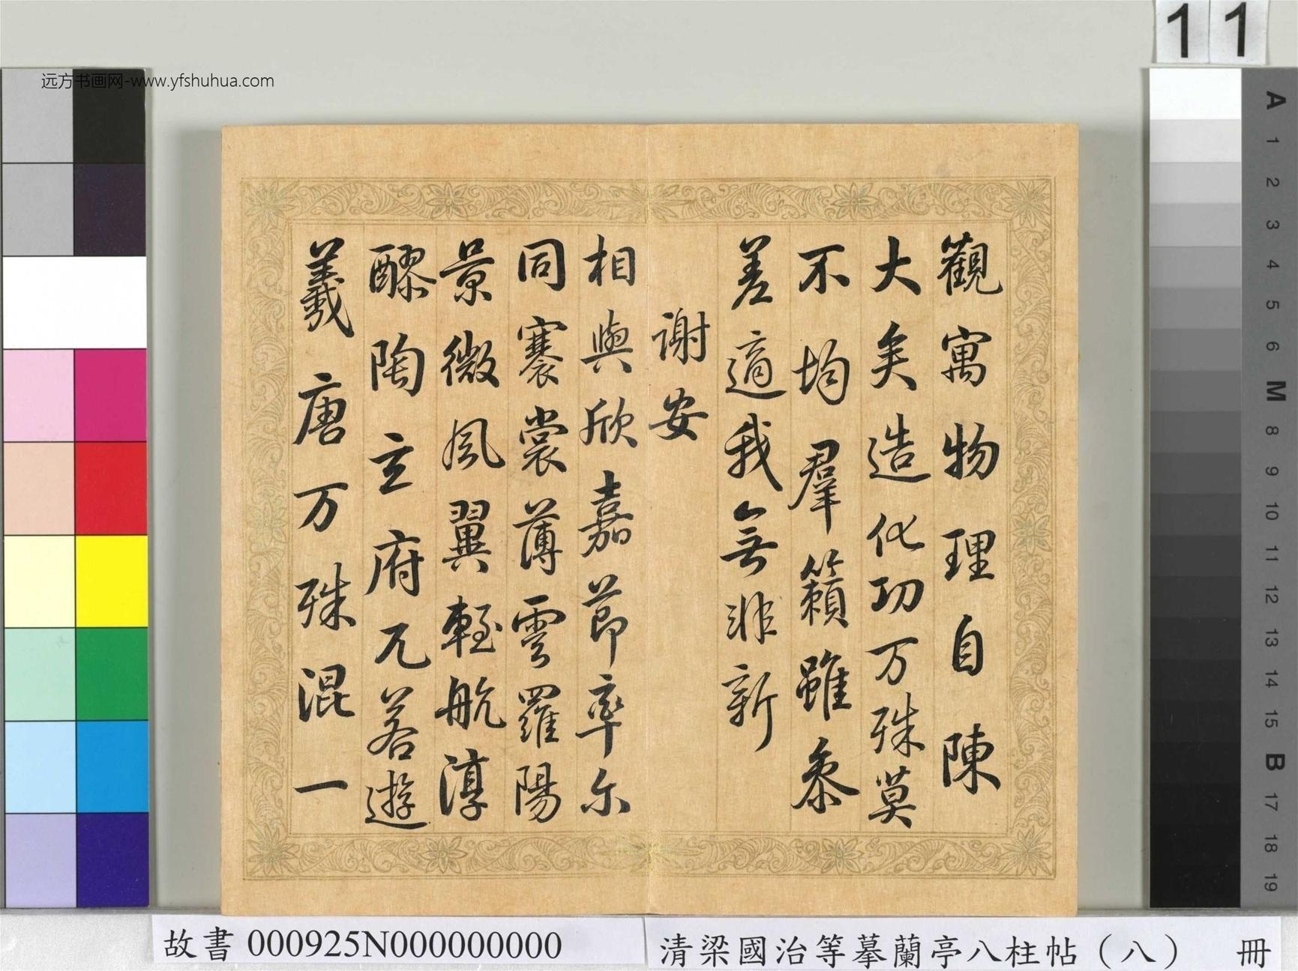 11
远方书画网-www.yfshuhua.com
觀寓物理自陳
大矣造化功万殊莫
不均羣籟雖叅
差適我無非新
謝安
相與欣嘉節率尔
同褰裳薄雲羅陽
景微風翼輕航淳
醪陶玄府兀若遊
羲唐万殊混一
A
1
2
3
4
5
6
M
8
9
10
11
12
13
14
15
B
17
18
19
故書000925N000000000
清梁國治等摹蘭亭八柱帖（八） 冊